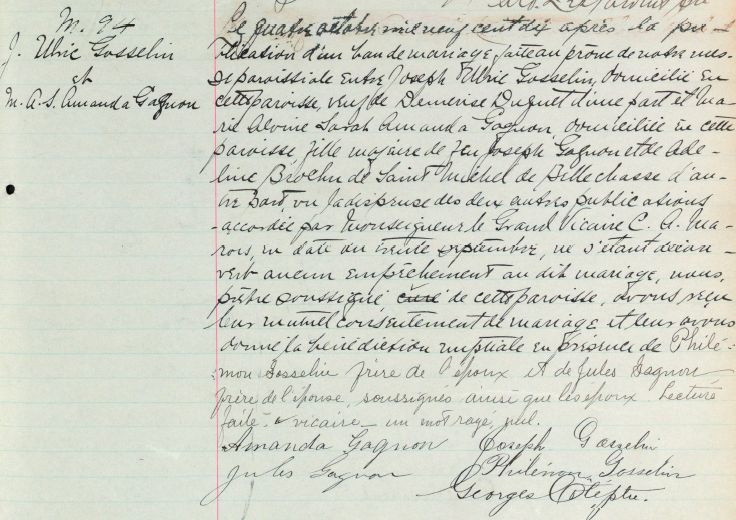 M. 94
J. Ulric Gosselin
et
M. A. S. Amanda Gagnon
Le quatre octobre mil neuf cent dix après la pu-
blication d'un ban de mariage, faite au prône de notre mes-
se paroissiale entre Joseph Ulric Gosselin, domicilié en
cette paroisse, veuf de Demerise Duquet d'une part et Ma-
rie Alvine Sarah Amanda Gagnon, domiciliée en cette
paroisse, fille majeure de feu Joseph Gagnon et de Ade-
line Brochu de Saint Michel de Bellechasse d'au-
tre part, vu la dispense des deux autres publications
accordée par Monseigneur le Grand Vicaire C. A. Ma-
rois, en date du trente septembre, ne s'étant décou-
vert aucun empêchement au dit mariage, nous,
prêtre soussigné curé de cette paroisse, avons reçu
leur mutuel consentement de mariage et leur avons
donné la bénédiction nuptiale en présence de Philé-
mon Gosselin frère de l'époux et de Jules Gagnon
frère de l'épouse, soussignés ainsi que les époux. Lecture
faite. vicaire un mot rayé, nul.
Amanda Gagnon Joseph Gosselin
Jules Gagnon Philémon Gosselin
Georges